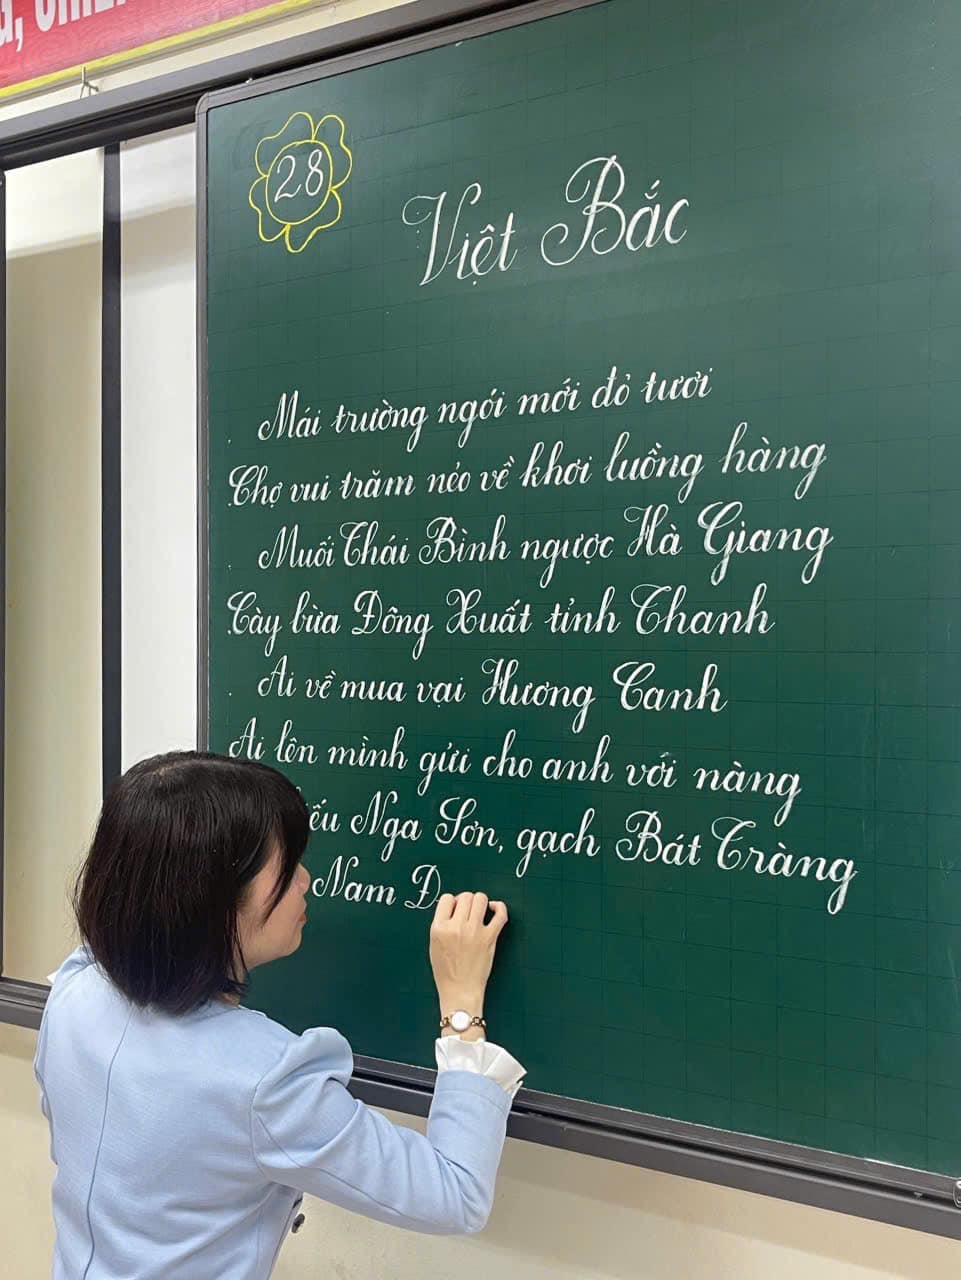 28
Việt Bắc
Mái trường ngói mới đỏ tươi
Chợ vui trăm nẻo về khơi luồng hàng
Muối Thái Bình ngược Hà Giang
Cày bừa Đông Xuất tỉnh Thanh
Ai về mua vại Hương Canh
Ai lên mình gửi cho anh với nàng
ếu Nga Sơn, gạch Bát Tràng
Nam Đ